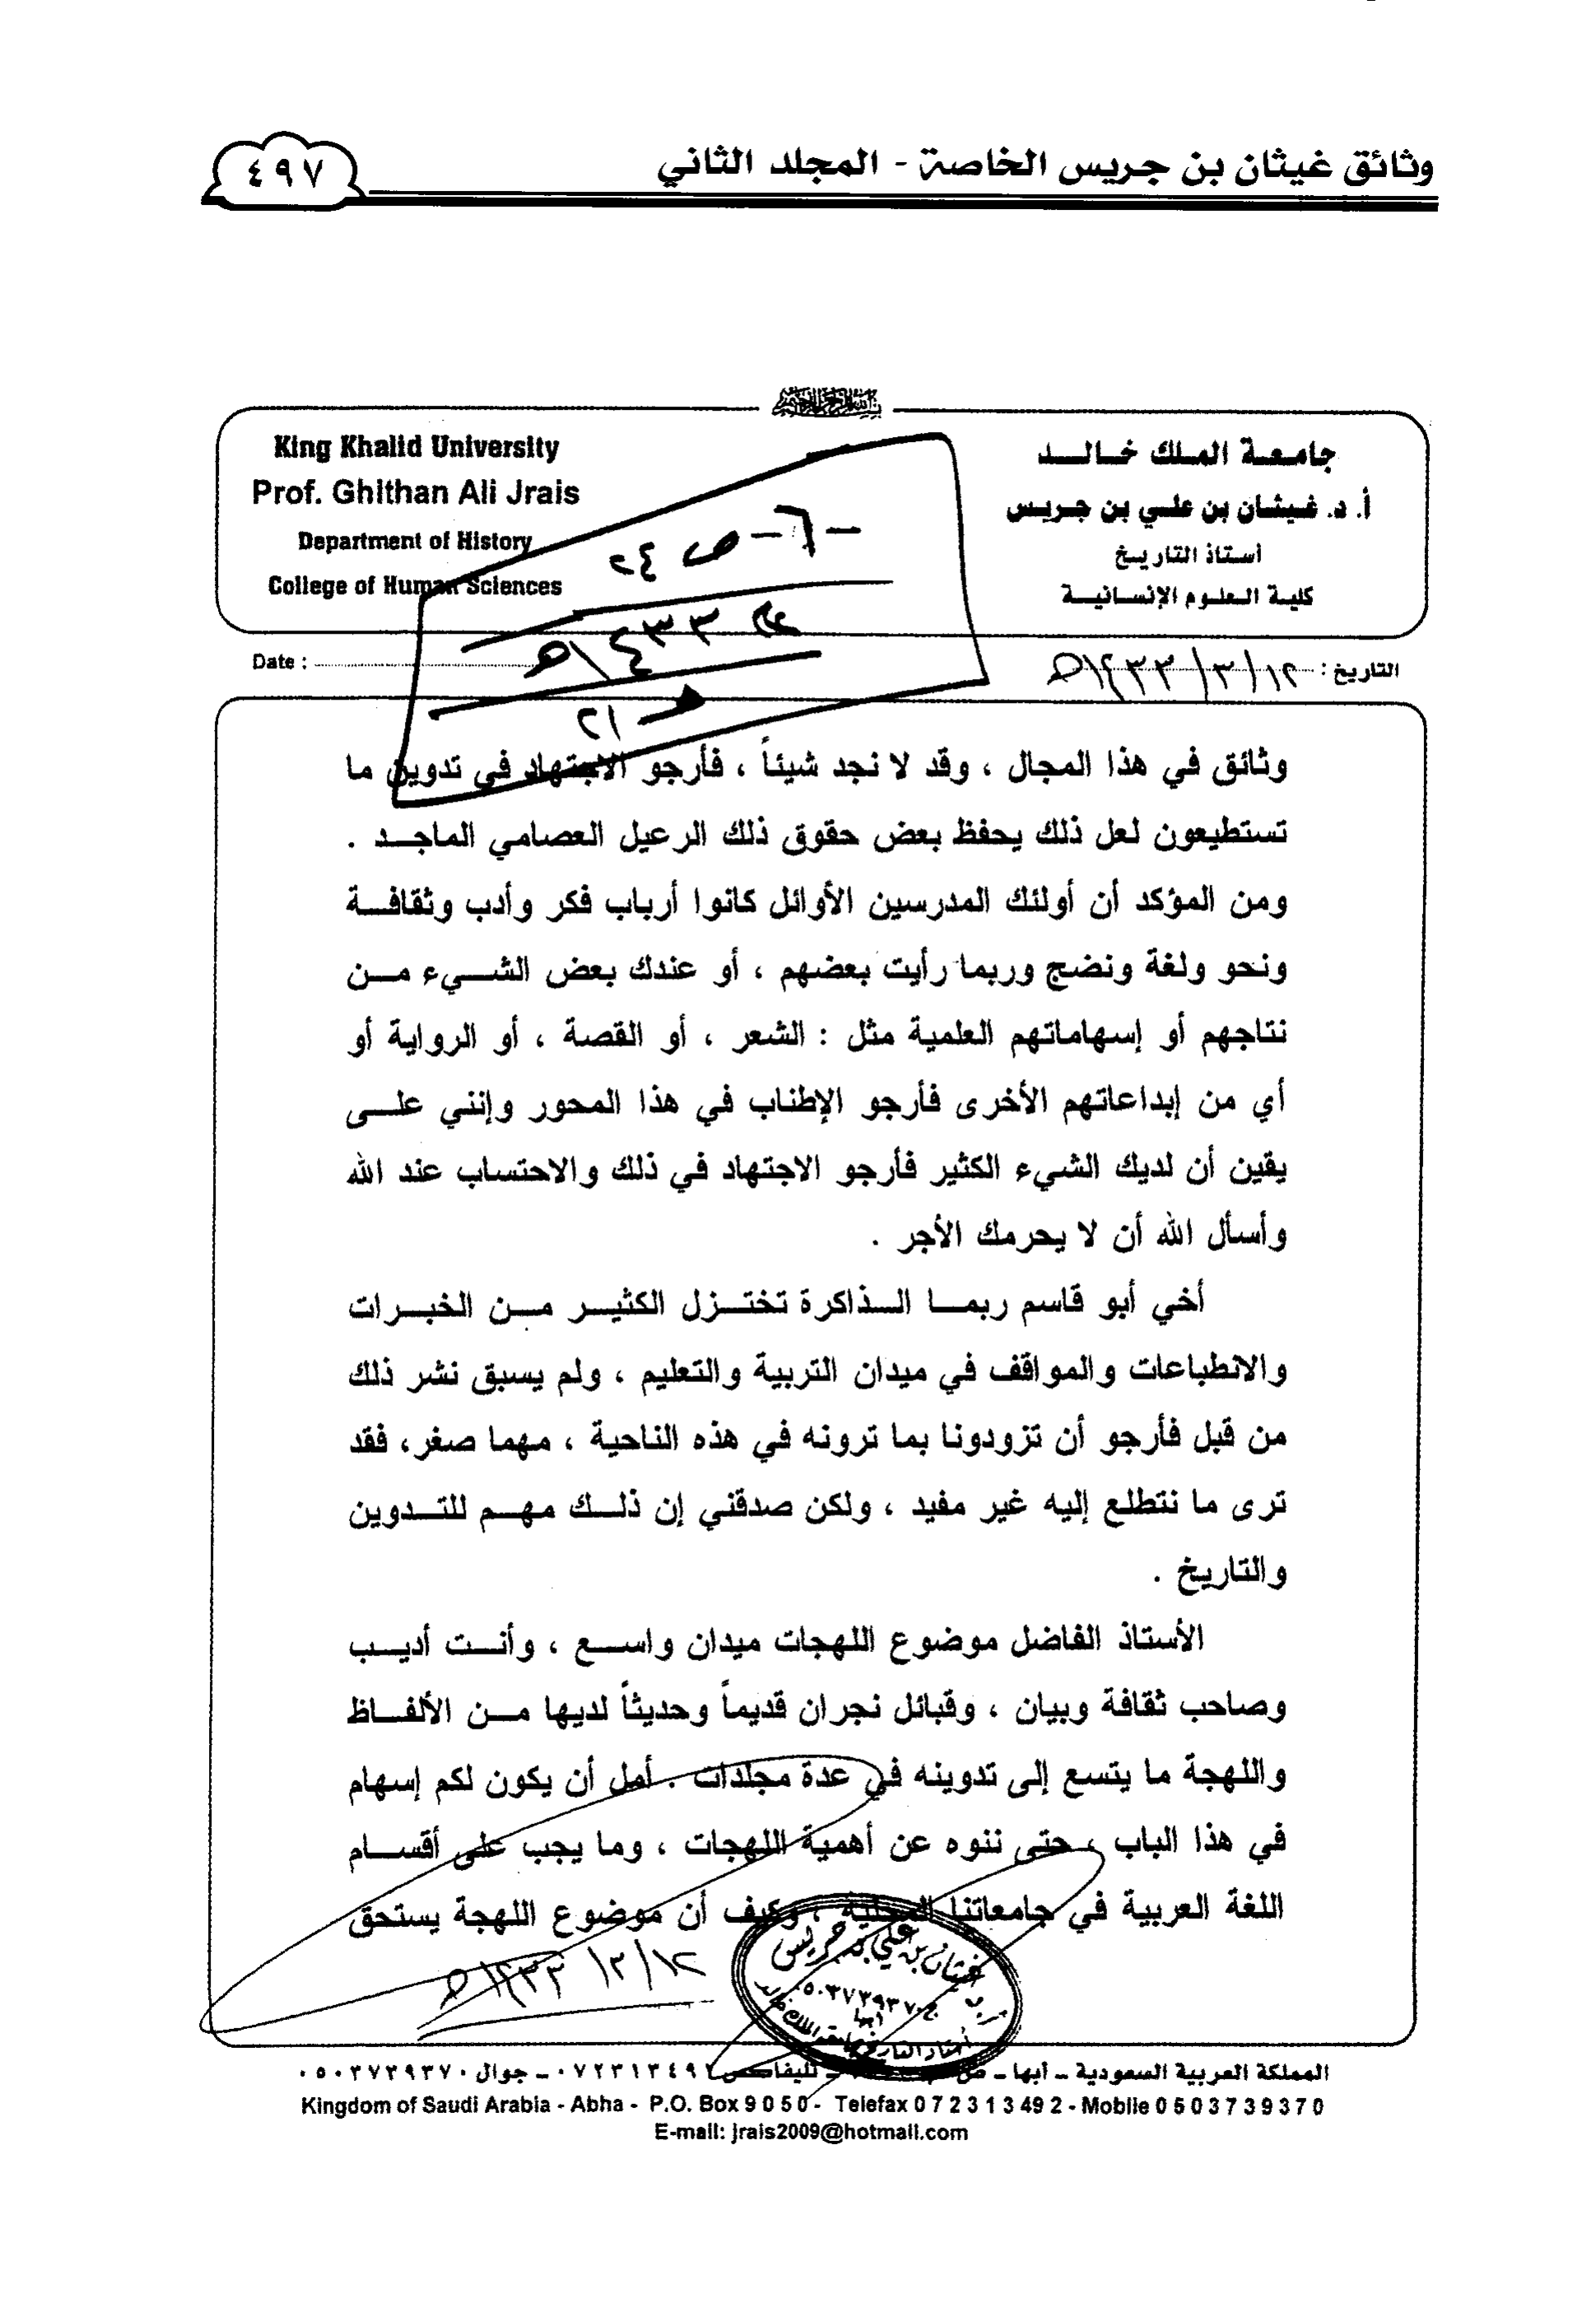 وثائق غيثان بن جريس الخاصة - المجلد الثاني
٤٩٧
King Khalid University
Prof. Ghithan Ali Jrais
Department of History
College of Human Sciences
جامعة الملك خالد
أ. د. غيثان بن علي بن جريس
أستاذ التاريخ
كلية العلوم الإنسانية
-٦- ص ٢٤
١٤٣٣هـ
Date :
التاريخ : ١٢/٣/١٤٣٣هـ
وثائق في هذا المجال ، وقد لا نجد شيئاً ، فأرجو الاجتهاد في تدوين ما
تستطيعون لعل ذلك يحفظ بعض حقوق ذلك الرعيل العصامي الماجد .
ومن المؤكد أن أولئك المدرسين الأوائل كانوا أرباب فكر وأدب وثقافة
ونحو ولغة ونضج وربما رأيت بعضهم ، أو عندك بعض الشيء من
نتاجهم أو إسهاماتهم العلمية مثل : الشعر ، أو القصة ، أو الرواية أو
أي من إبداعاتهم الأخرى فأرجو الإطناب في هذا المحور وإنني على
يقين أن لديك الشيء الكثير فأرجو الاجتهاد في ذلك والاحتساب عند الله
وأسأل الله أن لا يحرمك الأجر .
أخي أبو قاسم ربما الذاكرة تختزل الكثير من الخبرات
والانطباعات والمواقف في ميدان التربية والتعليم ، ولم يسبق نشر ذلك
من قبل فأرجو أن تزودونا بما ترونه في هذه الناحية ، مهما صغر، فقد
ترى ما نتطلع إليه غير مفيد ، ولكن صدقني إن ذلك مهم للتدوين
والتاريخ .
الأستاذ الفاضل موضوع اللهجات ميدان واسع ، وأنت أديب
وصاحب ثقافة وبيان ، وقبائل نجران قديماً وحديثاً لديها من الألفاظ
واللهجة ما يتسع إلى تدوينه في عدة مجلدات . أمل أن يكون لكم إسهام
في هذا الباب ، حتى ننوه عن أهمية اللهجات ، وما يجب على أقسام
اللغة العربية في جامعاتنا المحلية ، وكيف أن موضوع اللهجة يستحق
١٢/٣/١٤٣٣هـ
غيثان بن علي بن جريس
ج ٠٥٠٣٧٣٩٣٧٠
أبها
أستاذ التاريخ بجامعة الملك خالد
المملكة العربية السعودية – أبها – تليفاكس ٠٧٢٣١٣٤٩٢ – جوال ٠٥٠٣٧٣٩٣٧٠
Kingdom of Saudi Arabia - Abha - P.O. Box 9 0 5 0 - Telefax 0 7 2 3 1 3 49 2 - Mobile 0 5 0 3 7 3 9 3 7 0
E-mail: jrais2009@hotmail.com